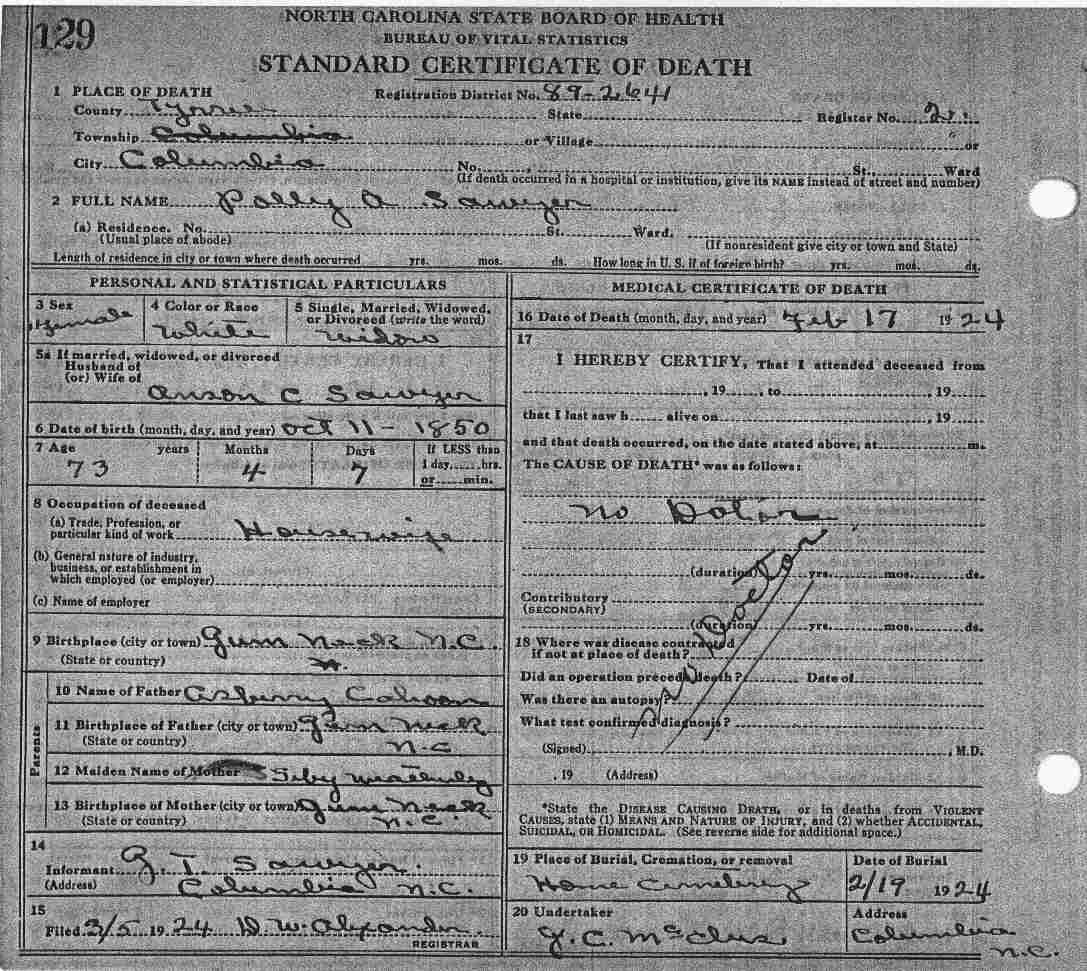 129
NORTH CAROLINA STATE BOARD OF HEALTH
BUREAU OF VITAL STATISTICS
STANDARD CERTIFICATE OF DEATH
1 PLACE OF DEATH Registration District No. 89-2641
County State Register No.
Township Columbia or Village or
City Columbia No. , St., Ward
(If death occurred in a hospital or institution, give its NAME instead of street and number)
2 FULL NAME Polly A Sawyer
(a) Residence. No. St. Ward.
(Usual place of abode) (If nonresident give city or town and State)
Length of residence in city or town where death occurred yrs. mos. ds. How long in U. S. if of foreign birth? yrs. mos. ds.
PERSONAL AND STATISTICAL PARTICULARS
3 Sex 4 Color or Race 5 Single, Married, Widowed, or Divorced (write the word)
Female White Widow
5a If married, widowed, or divorced
Husband of
(or) Wife of
Anson C Sawyer
6 Date of birth (month, day, and year) Oct 11 - 1850
7 Age years Months Days If LESS than
73 4 7 1 day, hrs.
or min.
8 Occupation of deceased
(a) Trade, Profession, or
particular kind of work Housewife
(b) General nature of industry,
business, or establishment in
which employed (or employer)
(c) Name of employer
9 Birthplace (city or town) Gum Neck N.C.
(State or country)
Parents
10 Name of Father Asberry Cahoon
11 Birthplace of Father (city or town) Gum Neck
(State or country) N.C
12 Maiden Name of Mother
13 Birthplace of Mother (city or town) Gum Neck
(State or country) N.C.
14
Informant G. T. Sawyer.
(Address) Columbia N.C.
15
Filed 3/5 1924 D.W. Alexander
REGISTRAR
MEDICAL CERTIFICATE OF DEATH
16 Date of Death (month, day, and year) Feb 17 1924
17
I HEREBY CERTIFY, That I attended deceased from
, 19 , to , 19
that I last saw h alive on , 19
and that death occurred, on the date stated above, at m.
The CAUSE OF DEATH* was as follows:
No
(duration) yrs. mos. ds.
Contributory
(SECONDARY)
(duration) yrs. mos. ds.
18 Where was disease contracted
if not at place of death?
Did an operation precede death? Date of
Was there an autopsy?
What test confirmed diagnosis?
No Doctor
(Signed) , M.D.
, 19 (Address)
*State the DISEASE CAUSING DEATH, or in deaths from VIOLENT
CAUSES, state (1) MEANS AND NATURE OF INJURY, and (2) whether ACCIDENTAL,
SUICIDAL, OR HOMICIDAL. (See reverse side for additional space.)
19 Place of Burial, Cremation, or removal Date of Burial
Home Cemetery 2/19 1924
20 Undertaker Address
J. C. Columbia
N.C.